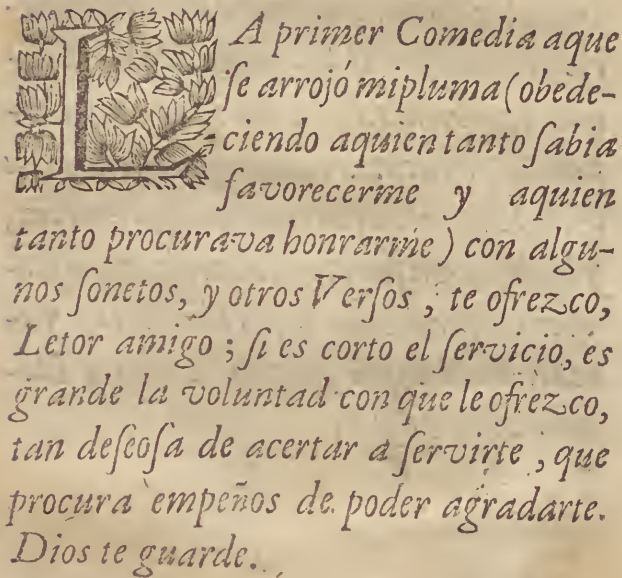 LA primer Comedia aque
ſe arrojó mipluma (obede-
ciendo aquien tanto ſabia
favorecerme y aquien
tanto procurava honrarme) con algu-
nos ſonetos, y otros Verſos, te ofrezco,
Letor amigo; ſi es corto el ſervicio, es
grande la voluntad con que le ofrezco,
tan deſeoſa de acertar a ſervirte, que
procura empeños de poder agradarte.
Dios te guarde.